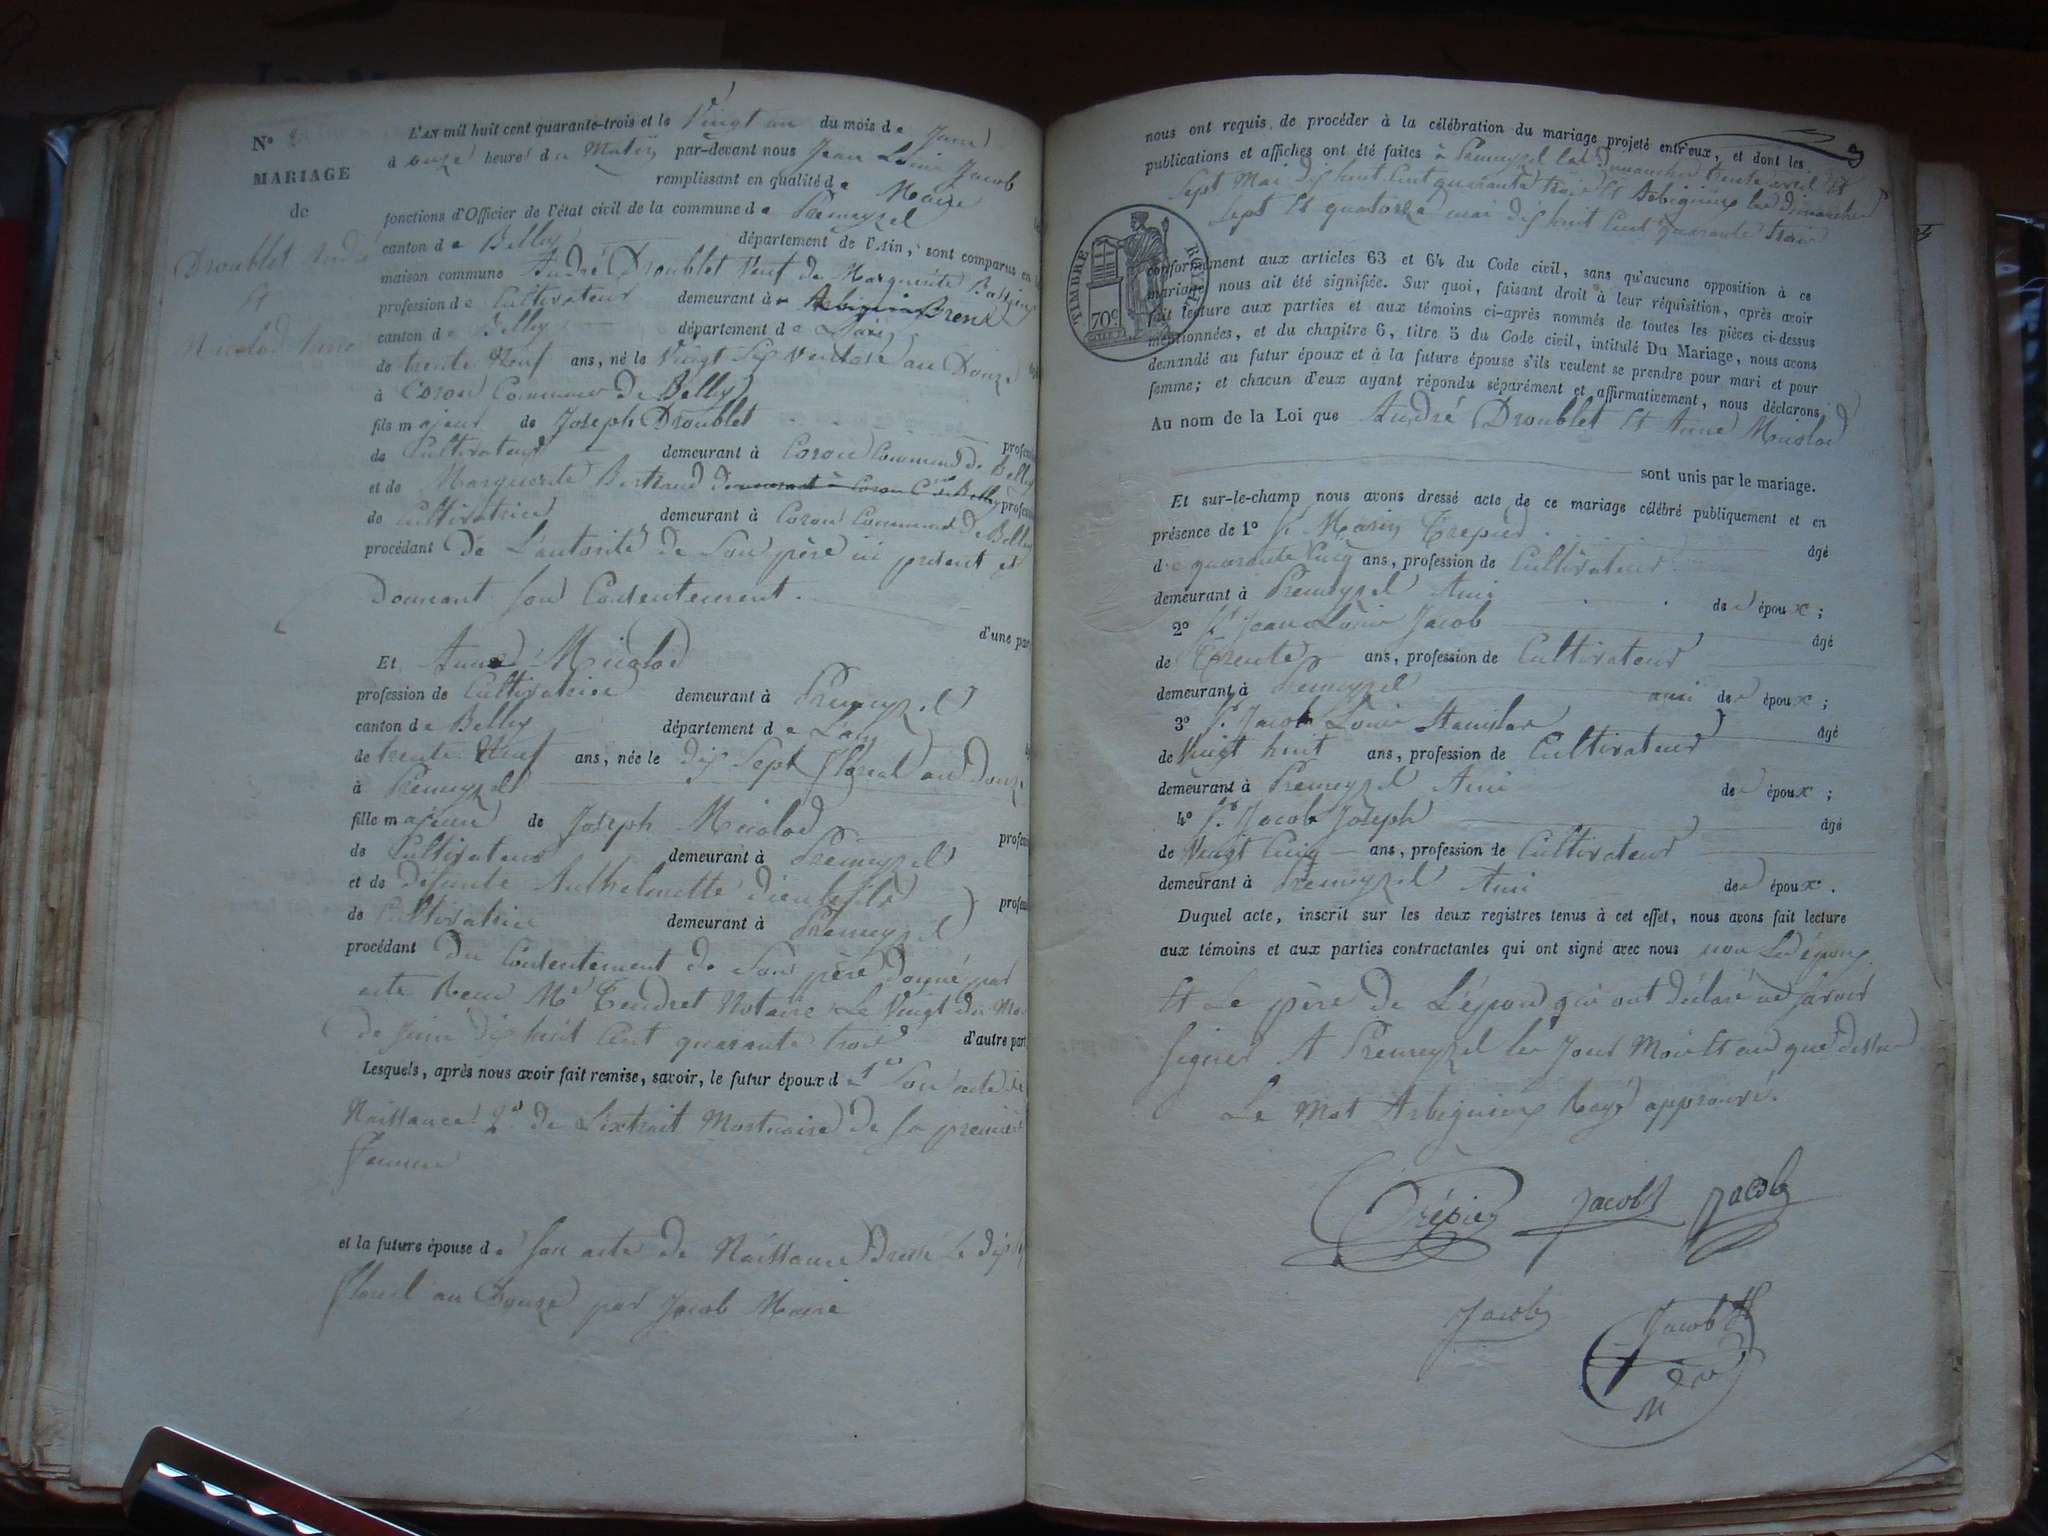 N°
MARIAGE
de
Droublet André
Et
Micolod Anne
L'AN mil huit cent quarante-trois et le Vingt un du mois de Juin
à onze heures du Matin par-devant nous Jean Louis Jacob
remplissant en qualité de Maire
fonctions d'Officier de l'état civil de la commune de Premeyzel
canton de Belley département de l'Ain, sont comparus en
maison commune André Droublet Veuf de Marguerite
profession de Cultivateur demeurant à Arbignieu Brens
canton de Belley département de Lain
de trente Neuf ans, né le Vingt Six Ventose an Douze
à Coron Commune de Belley
fils majeur de Joseph Droublet
de Cultivateur demeurant à Coron Commune de Belley
et de Marguerite Bertrand demeurant à Coron Cne de Belley
de Cultivatrice demeurant à Coron Commune de Belley
procédant de L'autorité de Son père ici présent et
Donnant Son Consentement.
d'une par
Et Anne Micolod
profession de Cultivatrice demeurant à Premeyzel
canton de Belley département de Lain
de trente Neuf ans, née le dix Sept floreal an Douze
à Premeyzel
fille majeure de Joseph Micolod
de Cultivateur demeurant à Premeyzel
et de défunte Anthelmette
de Cultivatrice demeurant à Premeyzel
procédant du Consentement de Son père donné par
acte Recu Me Tendret Notaire Le Vingt du Mois
de Juin dix huit Cent quarante trois d'autre part
Lesquels, après nous avoir fait remise, savoir, le futur époux de 1° Son acte de
Naissance 2° de L'extrait Mortuaire de Sa première
femme
et la future épouse de Son acte de Naissance Dressé Le dix
floreal an Douze par Jacob Maire
nous ont requis de procéder à la célébration du mariage projeté entr'eux, et dont les
publications et affiches ont été faites à Premeyzel les dimanches trente avril Et
Sept Mai dix huit Cent quarante trois Et Arbignieu les Dimanches
Sept Et quatorze mai dix huit Cent quarante trois
TIMBRE ROYAL
70c
conformément aux articles 63 et 64 du Code civil, sans qu'aucune opposition à ce
mariage nous ait été signifiée. Sur quoi, faisant droit à leur réquisition, après avoir
fait lecture aux parties et aux témoins ci-après nommés de toutes les pièces ci-dessus
mentionnées, et du chapitre 6, titre 5 du Code civil, intitulé Du Mariage, nous avons
demandé au futur époux et à la future épouse s'ils veulent se prendre pour mari et pour
femme; et chacun d'eux ayant répondu séparément et affirmativement, nous déclarons,
Au nom de la Loi que André Droublet Et Anne Micolod
sont unis par le mariage.
Et sur-le-champ nous avons dressé acte de ce mariage célébré publiquement et en
présence de 1° Sr Marin Trepier âgé
de quarante Cinq ans, profession de Cultivateur
demeurant à Premeyzel Ami des époux;
2° Sr Jean Louis Jacob âgé
de Trente ans, profession de Cultivateur
demeurant à Premeyzel ami des époux;
3° Sr Jacob Louis Stanislas âgé
de Vingt huit ans, profession de Cultivateur
demeurant à Premeyzel Ami des époux;
4° Sr Jacob Joseph âgé
de Vingt Cinq ans, profession de Cultivateur
demeurant à Premeyzel Ami des époux.
Duquel acte, inscrit sur les deux registres tenus à cet effet, nous avons fait lecture
aux témoins et aux parties contractantes qui ont signé avec nous non Les époux
Et Le père de L'époux qui ont déclaré ne Savoir
Signer A Premeyzel les Jour Mois Et an que dessus
Le Mot Arbignieu Rayé approuvé.
Trépier Jacob Jacob
Jacob Jacob